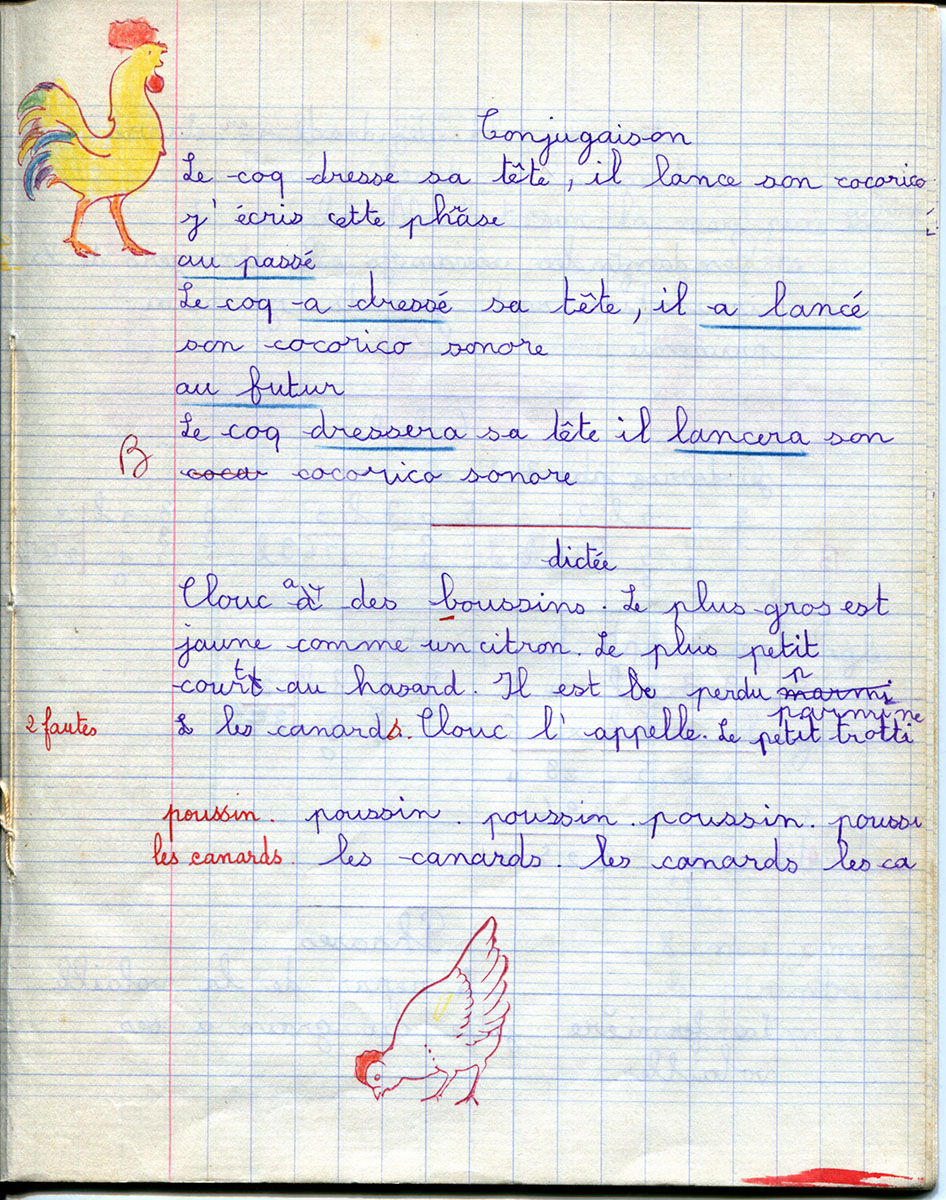 Conjugaison
Le coq dresse sa tête, il lance son cocorico
J'écris cette phrase
au passé
Le coq a dressé sa tête, il a lancé
son cocorico sonore
au futur
Le coq dressera sa tête il lancera son
B
cocorico sonore
dictée
Clouc a des boussins. Le plus gros est
jaune comme un citron. Le plus petit
court au hasard. Il est perdu
parmi
2 fautes
les canards. Clouc l'appelle. Le petit trotti
ne
poussin. poussin. poussin. poussin. poussi
les canards. les canards. les canards les ca